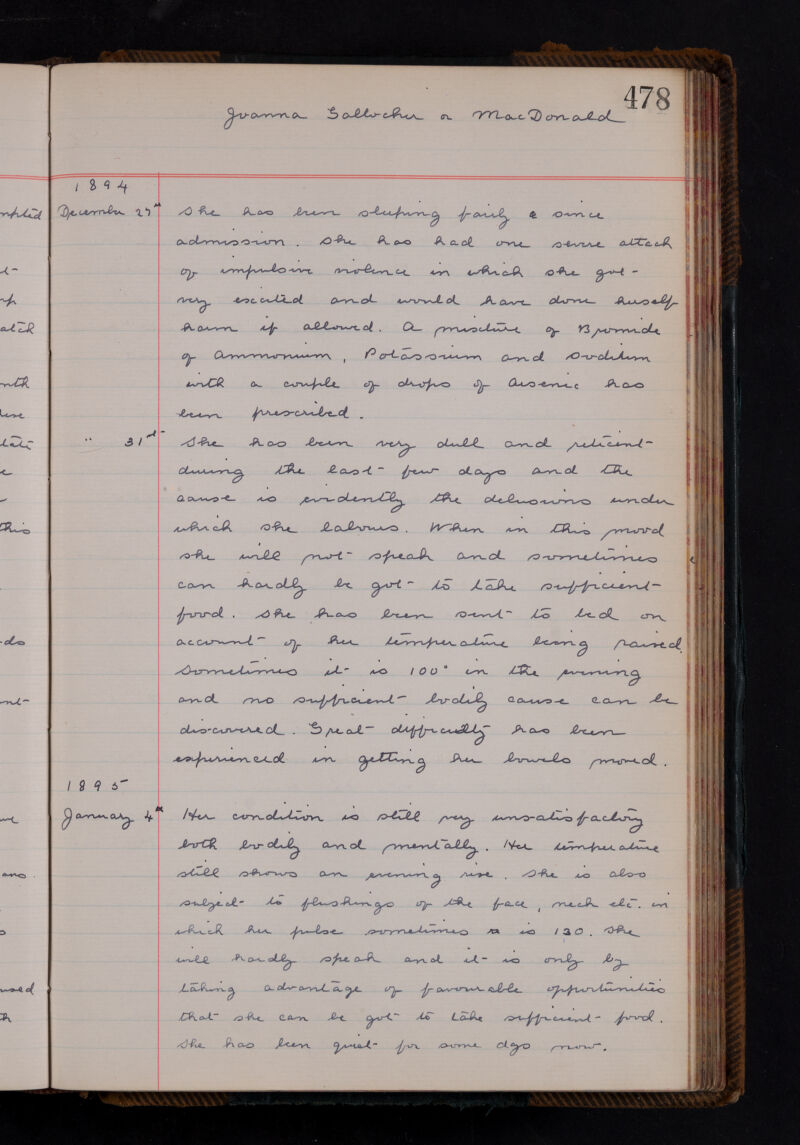 478
Joanna Gallocher or MacDonald
1894
December 27th She has been sleeping fairly since
admission. She has had one severe attack
of impulsive violence in which she got
very excited and would have done herself
harm if allowed. A mixture of Bromide
of Ammonium, Potassium and Sodium
with a couple of drops of Arsenic has
been prescribed.
" 31st She has been very dull and reticent
during the last few days and the
cause is evidently the delusions under
which she labours. When in this mood
she will not speak and sometimes
can hardly be got to take sufficient
food. She has been sent to bed on
account of her temperature being raised.
Sometimes it is 100° in the evening
and no sufficient bodily cause can be
discovered. Great difficulty has been
experienced in getting her bowels moved.
1895
January 4th Her condition is still very unsatisfactory
both bodily and mentally. Her temperature
still shows an evening rise. She is also
subject to flushings of the face, neck etc. in
which her pulse sometimes is 130. She
will hardly speak and it is only by
taking advantage of favourable opportunities
that she can be got to take sufficient food.
She has been quiet for some dys now.